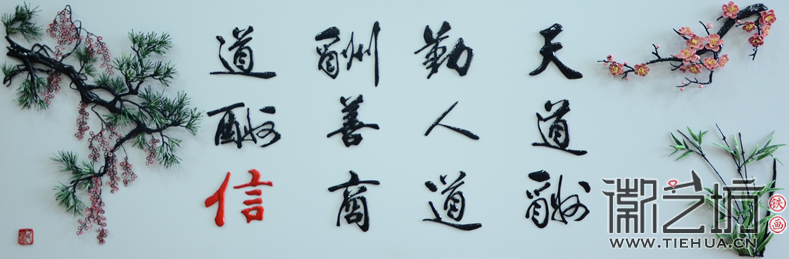 天道酬
勤人道
酬善商
道酬信
徽艺坊
铁画
WWW.TIEHUA.CN